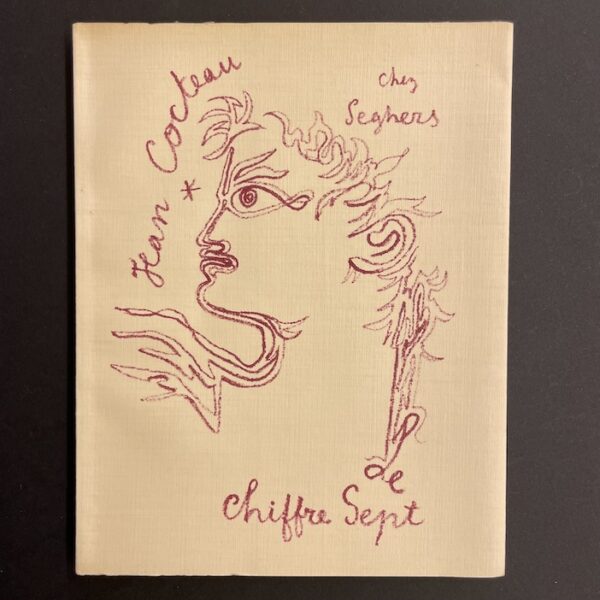 Jean Cocteau
chez
Seghers
Le
Chiffre Sept